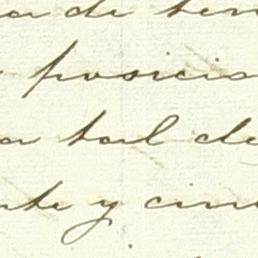 a de ten
posicio
a tal de
nte y cinc